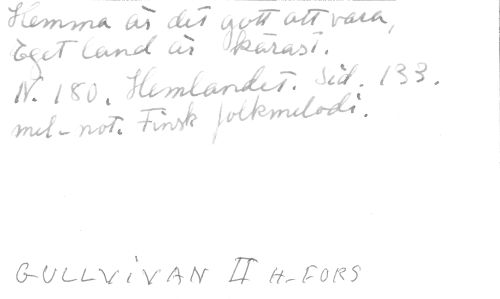 Hemma är det gott att vara,
eget land är kärast.
N. 180. Hemlandet. Sid. 133.
mel-not. Finsk folkmelodi.
GULLViVAN II H-FORS